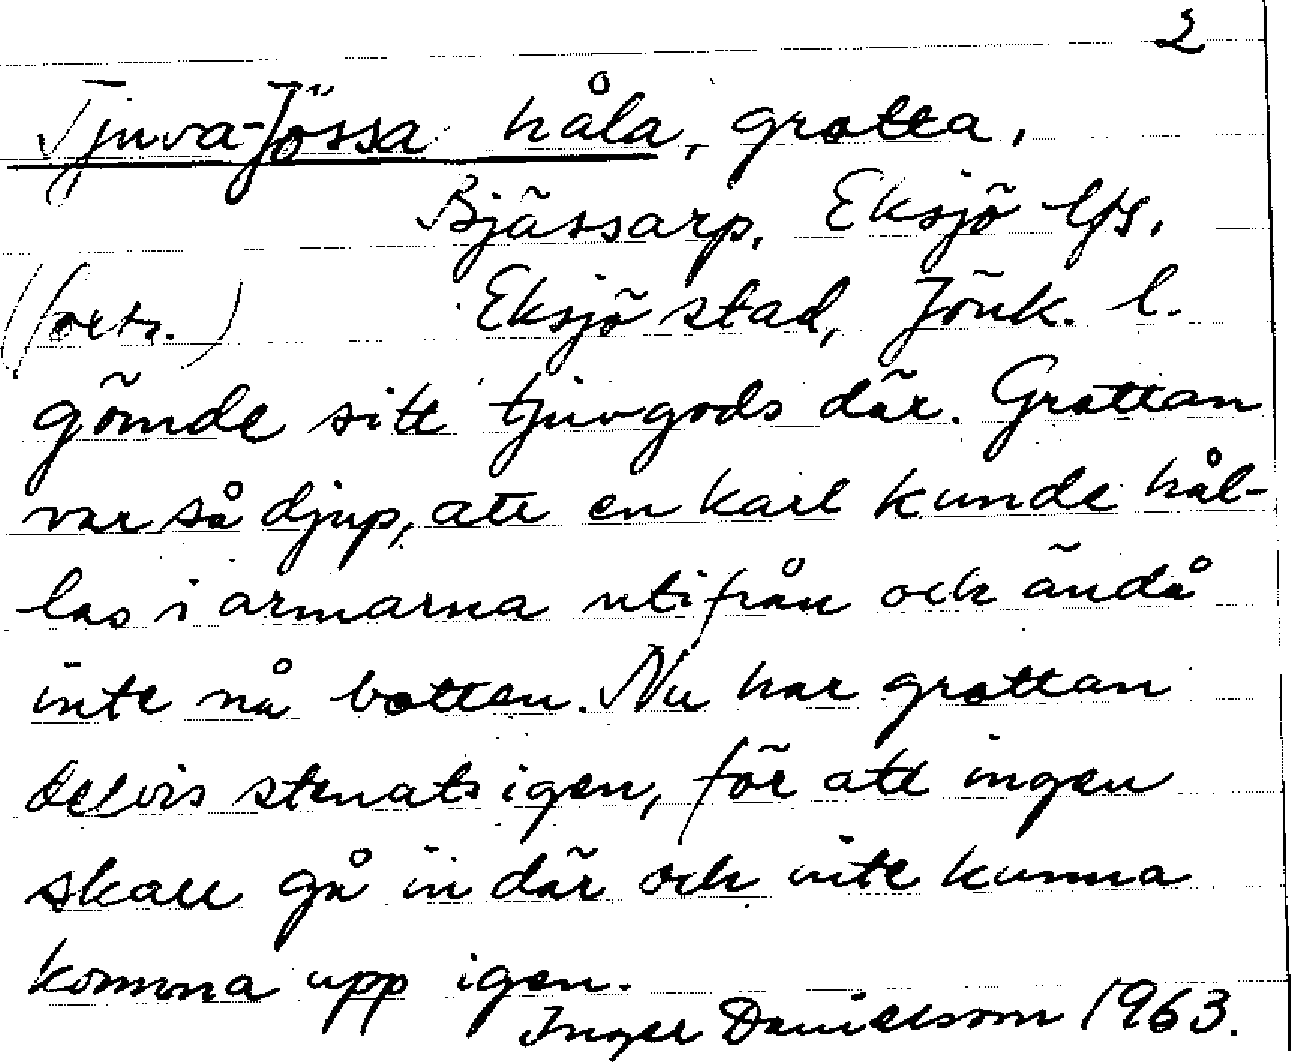 2
Tjuva-Jössa håla, grotta,
Bjässarp, Eksjö lfs,
(forts.) Eksjö stad, Jönk. l.
gömde sitt tjuvgods där. Grottan
var så djup, att en karl kunde hål-
las i armarna utifrån och ändå
inte nå botten. Nu har grottan
delvis stenats igen, för att ingen
skall gå in där och inte kunna
komma upp igen.
Inger Danielsson 1963.